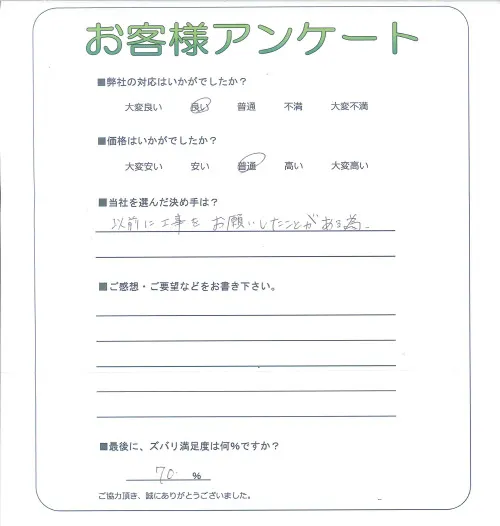 お客様アンケート
■弊社の対応はいかがでしたか？
大変良い 良い 普通 不満 大変不満
■価格はいかがでしたか？
大変安い 安い 普通 高い 大変高い
■当社を選んだ決め手は？
以前に工事を お願いしたことがある為
■ご感想・ご要望などをお書き下さい。
■最後に、ズバリ満足度は何%ですか？
70 %
ご協力頂き、誠にありがとうございました。